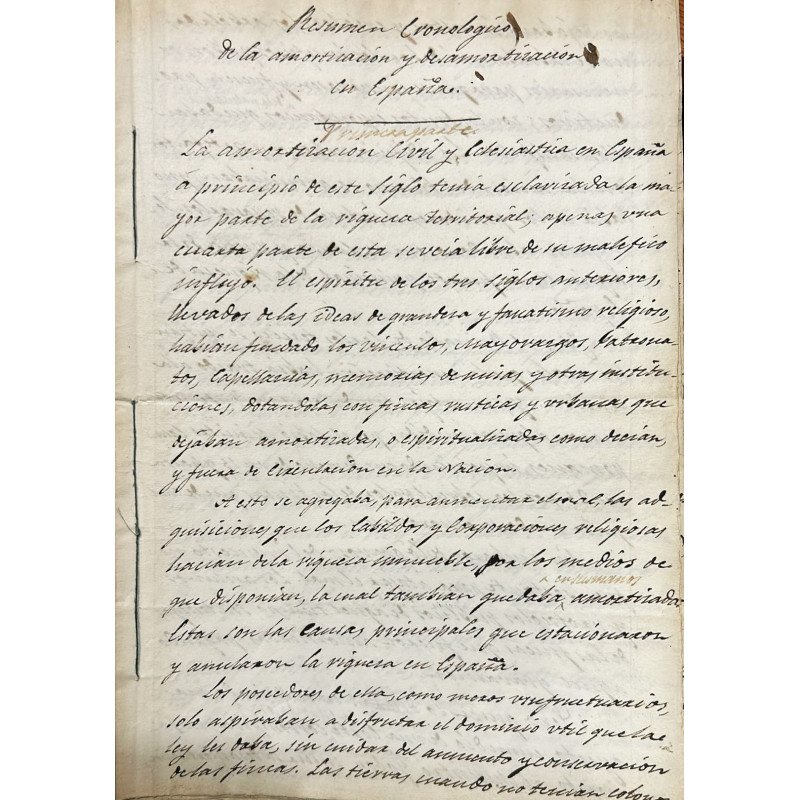 Resumen Cronologico
de la amortizacion y desamortizacion
en España.
Primera parte.
La amortizacion Civil y Eclesiastica en España
á principio de este Siglo tenia esclavizada la ma-
yor parte de la riqueza territorial; apenas una
cuarta parte de esta se veia libre de su malefico
influjo. El espiritu de los tres siglos anteriores,
llevados de las ideas de grandeza y fanatismo religioso,
habian fundado los vinculos, Mayorazgos, Patrona-
tos, Capellanias, memorias de misas y otras institu-
ciones, dotandolas con fincas rusticas y urbanas que
dejaban amortizadas, o espiritualizadas como decian,
y fuera de Circulacion en la Nacion.
A esto se agregaba, para aumentar el mal, las ad-
quisiciones que los Cabildos y Corporaciones religiosas
hacian de la riqueza inmueble, por los medios de
en sus manos
que disponian, la cual tambian quedaba amortizada.
Estas son las causas principales que estacionaron
y anularon la riqueza en España.
Los poseedores de ella, como meros usufructuarios,
solo aspiraban a disfrutar el dominio util que la
ley les daba, sin cuidar del aumento y conservacion
de las fincas. Las tierras cuando no tenian